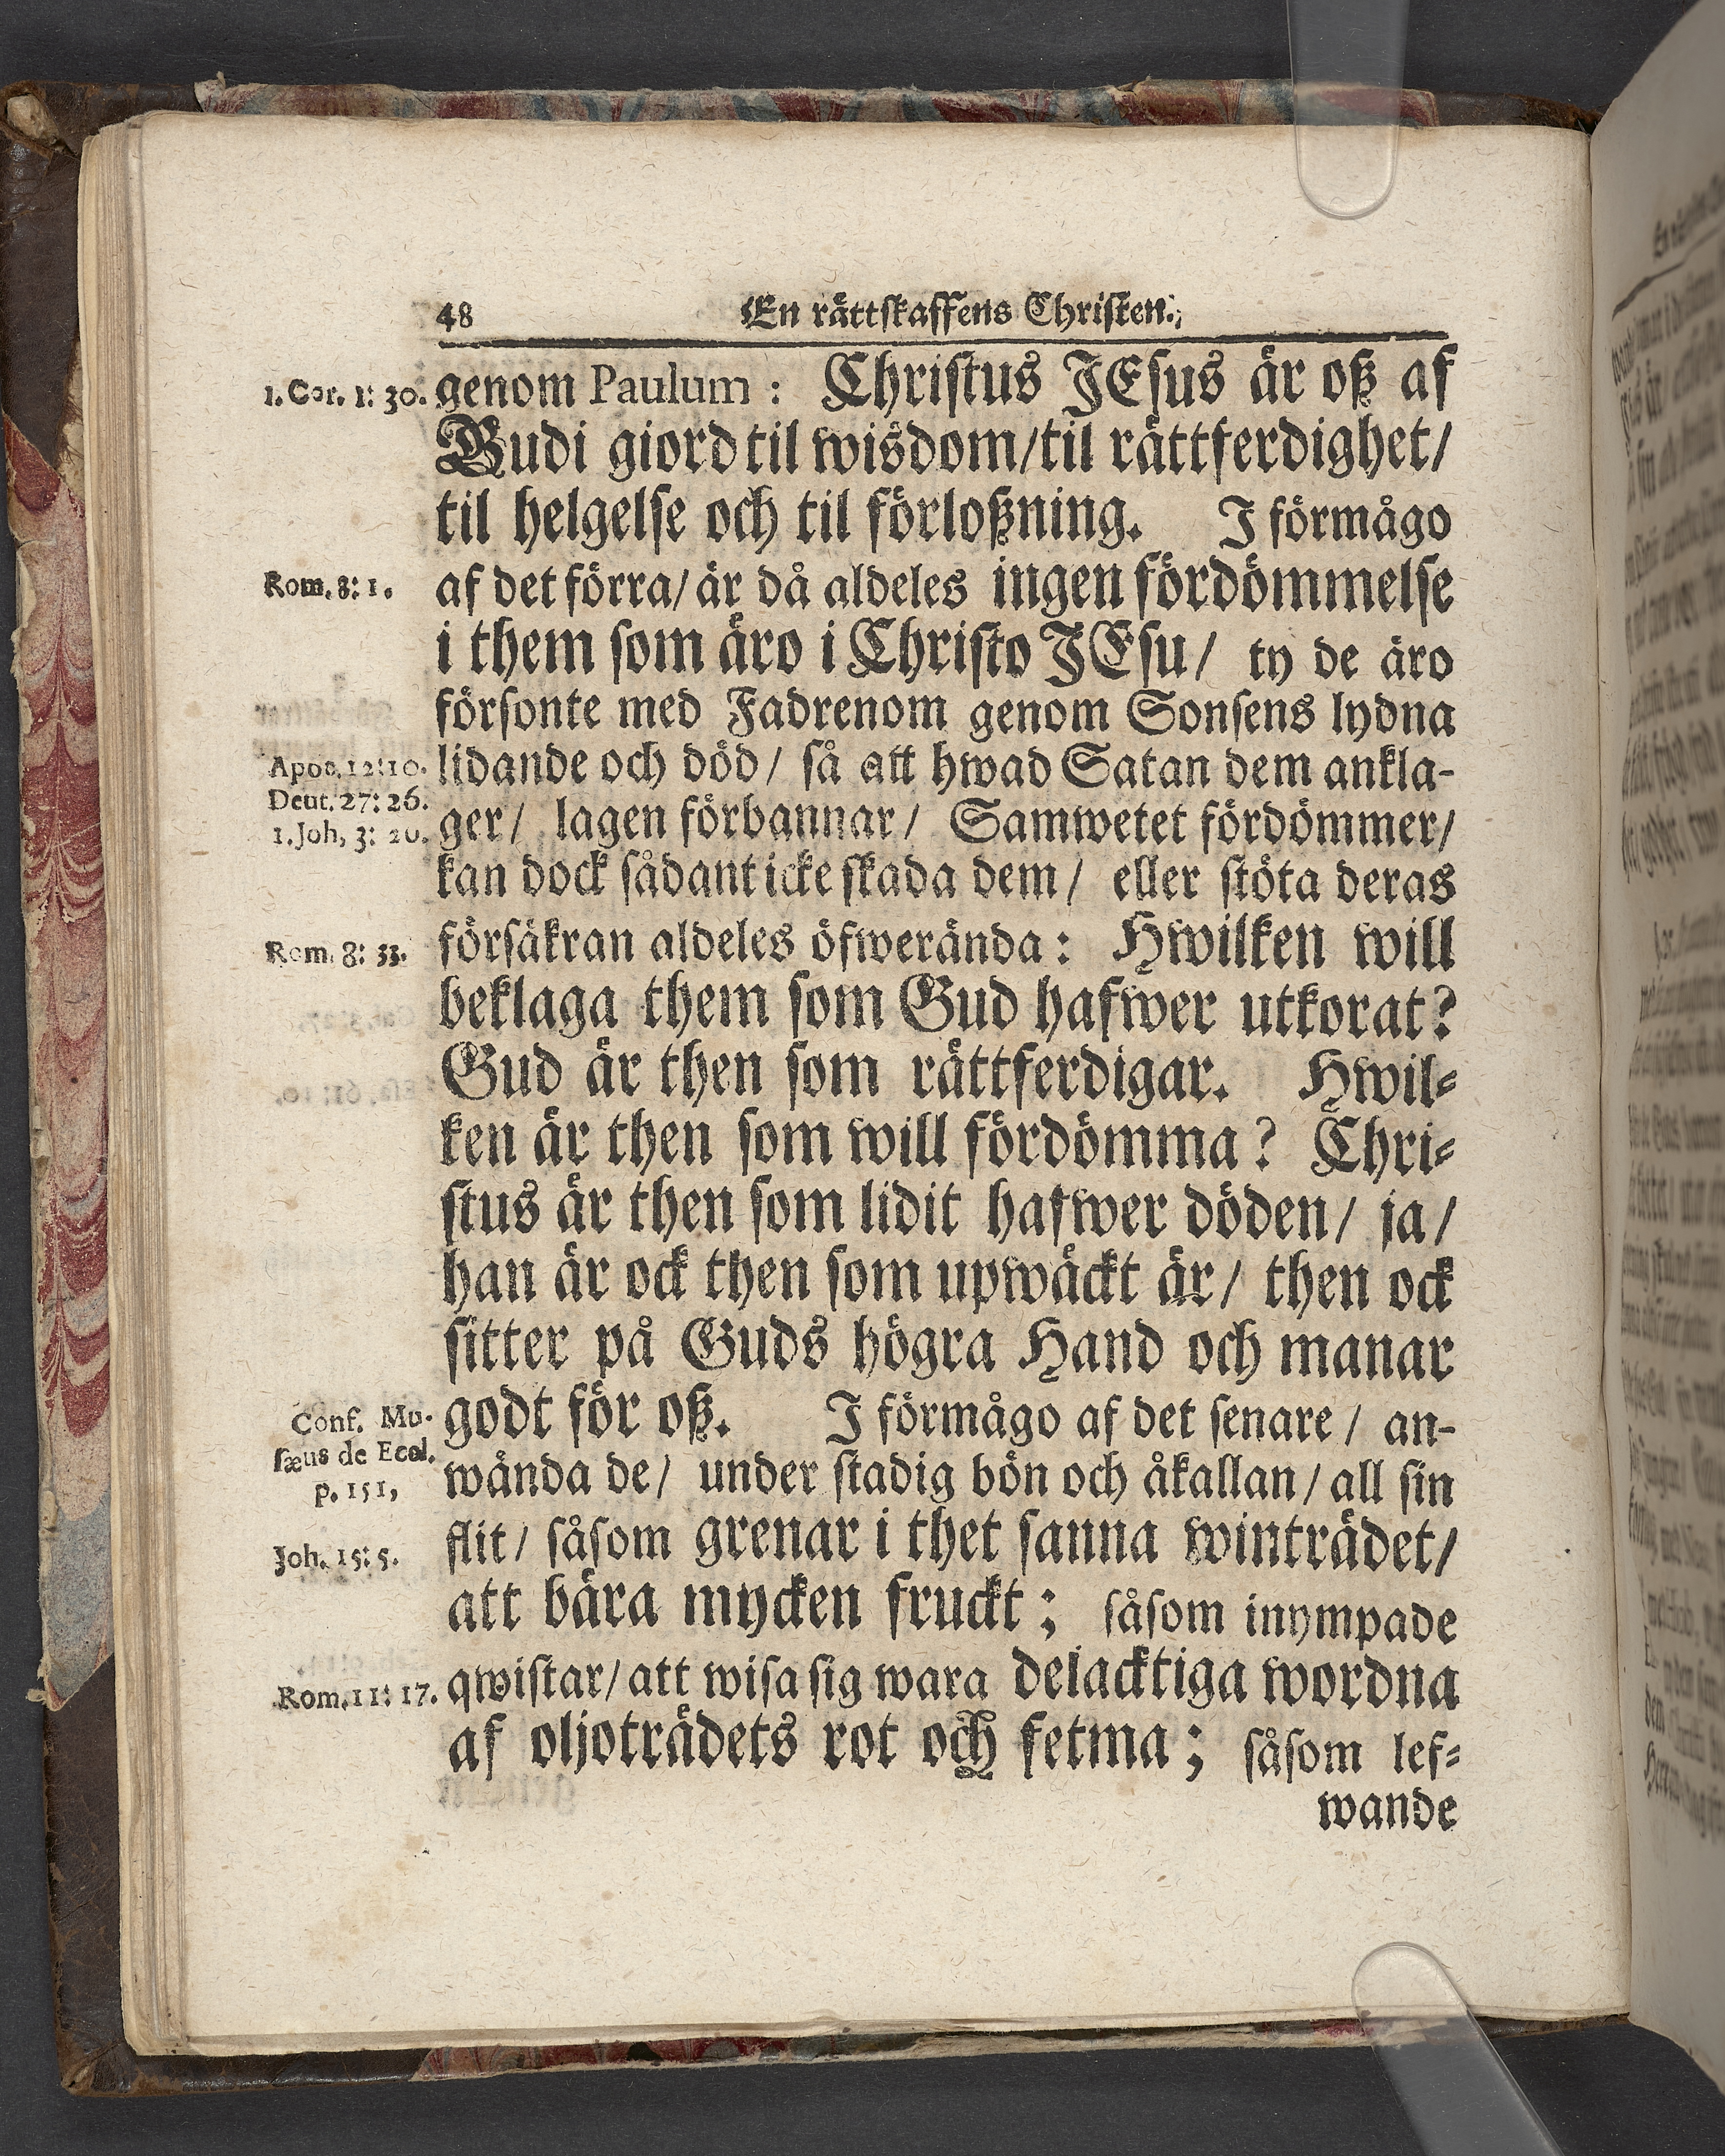 48 En rättskaffens Christen.
1. Cor. 1: 30.
genom Paulum: Christus JEsus är oß af
Gudi giord til wisdom/ til rättferdighet/
til helgelse och til förloßning. J förmågo
Rom. 8: 1.
af det förra/ är då aldeles ingen fördömmelse
i them som äro i Christo JEsu/ ty de äro
försonte med Fadrenom genom Sonsens lydna
Apoc. 12: 10.
lidande och död/ så att hwad Satan dem ankla-
Deut. 27: 26.
1. Joh. 3: 20.
ger/ lagen förbannar/ Samwetet fördömmer/
kan dock sådant icke skada dem/ eller stöta deras
Rom. 8: 33.
försäkran aldeles öfwerända: Hwilken will
beklaga them som Gud hafwer utkorat?
Gud är then som rättferdigar. Hwil-
ken är then som will fördömma? Chri-
stus är then som lidit hafwer döden/ ja/
han är ock then som upwäckt är/ then ock
sitter på Guds högra Hand och manar
Conf. Mu-
sæus de Eccl.
p. 151,
godt för oß. J förmågo af det senare/ an-
wända de/ under stadig bön och åkallan/ all sin
Joh. 15: 5.
flit/ såsom grenar i thet sanna winträdet/
att bära mycken fruckt; såsom inympade
Rom. 11: 17.
qwistar/ att wisa sig wara delacktiga wordna
af oljoträdets rot och fetma; såsom lef-
wande